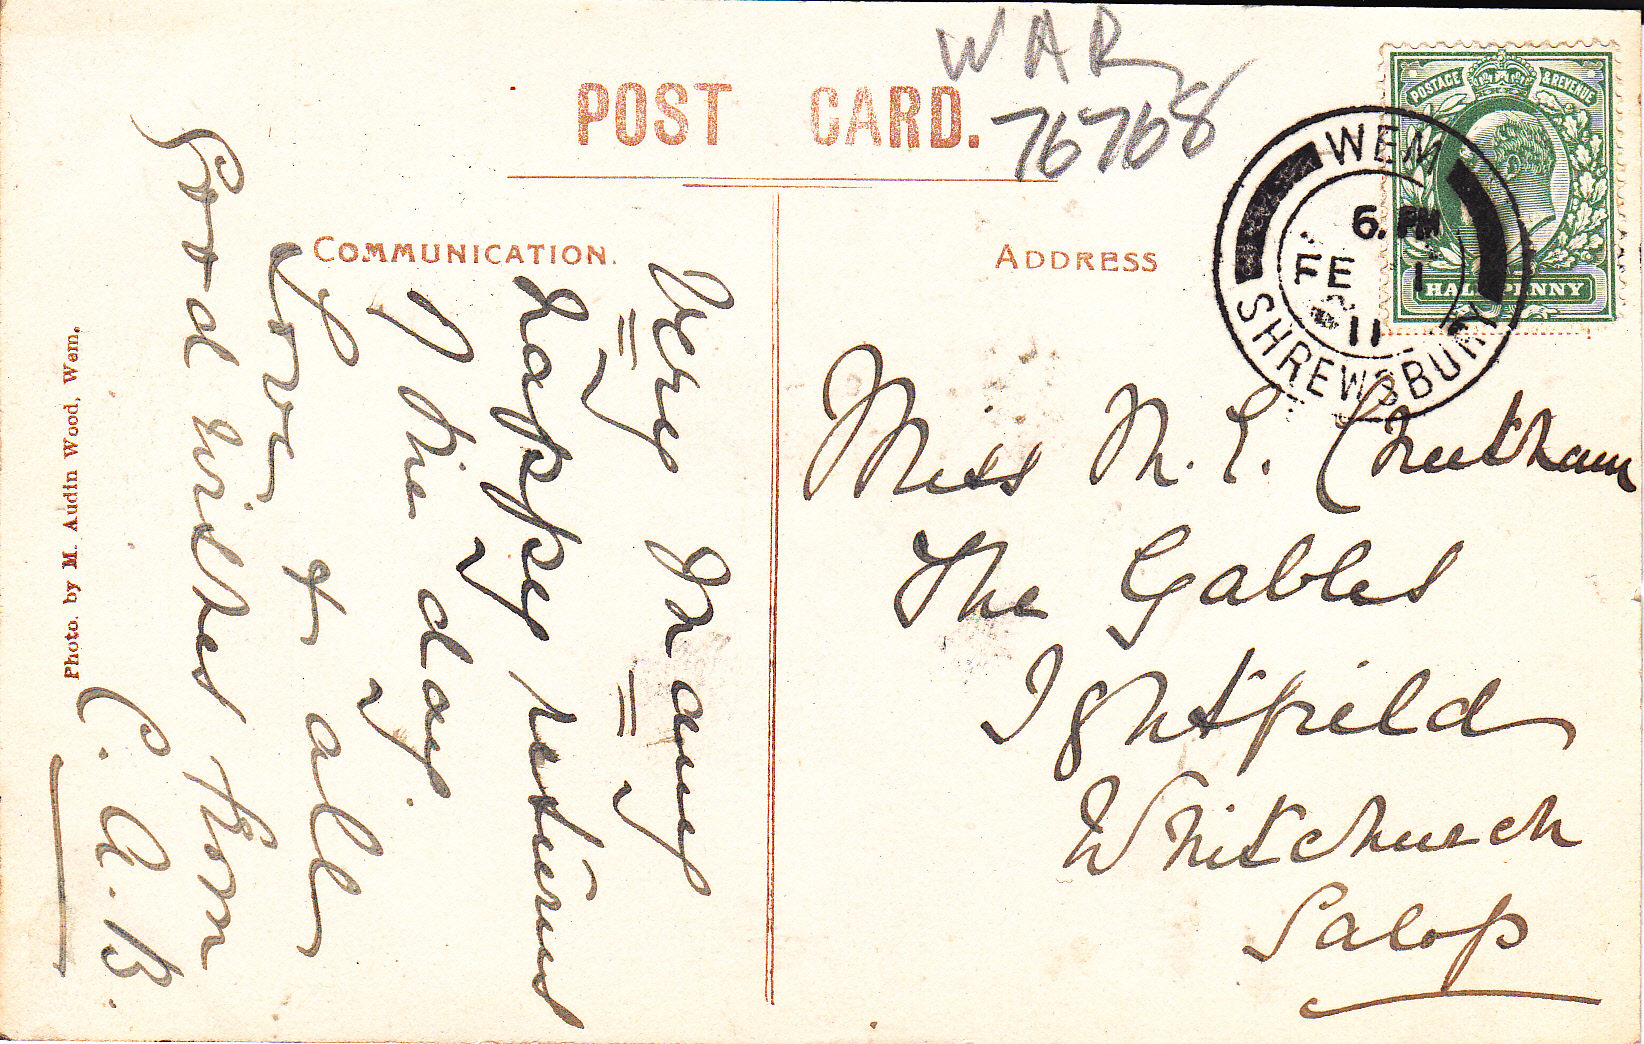 WAR
76768
POST CARD.
COMMUNICATION.
ADDRESS
POSTAGE & REVENUE
HALFPENNY
WEM
6. PM
FE 1
11
SHREWSBURY
Very Many
Happy returns
of the day
Love & all
Good wishes from
C. A. B.
Miss M. E. Cheetham
The Gables
Ightfield
Whitchurch
Salop
Photo. by M. Audin Wood, Wem.